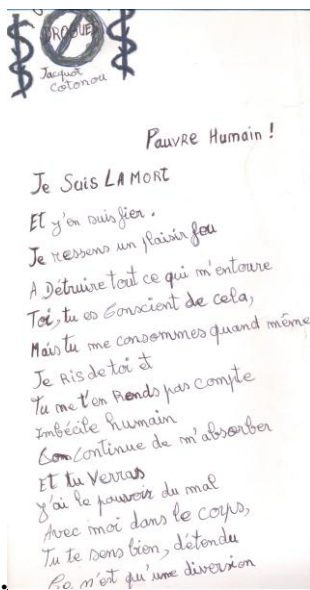 DROGUES
Jacquot
Cotonou
Pauvre Humain !
Je Suis LA MORT
Et y'en suis fier.
Je ressens un plaisir fou
A Détruire tout ce qui m'entoure
Toi, tu es Conscient de cela,
Mais tu me consommes quand même
Je Ris de toi et
Tu me t'en Rends pas compte
Imbécile humain
Continue de m'absorber
Et tu Verras
y'ai le pouvoir du mal
Avec moi dans le corps,
Tu te sens bien, détendu
Ce n'est qu'une diversion